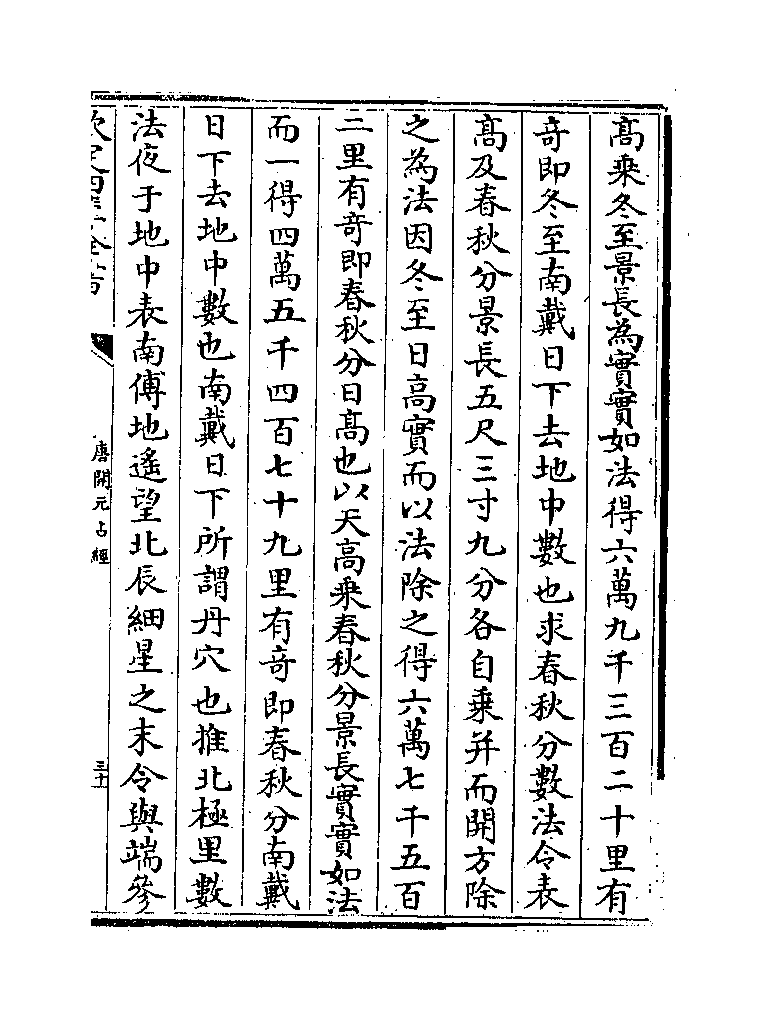 髙乗冬至景長為實實如法得六萬九千三百二十里有
竒即冬至南戴日下去地中數也求春秋分數法令表
髙及春秋分景長五尺三寸九分各自乗并而開方除
之為法因冬至日高實而以法除之得六萬七千五百
二里有竒即春秋分日髙也以天高乗春秋分景長實實如法
而一得四萬五千四百七十九里有竒即春秋分南戴
日下去地中數也南戴日下所謂丹穴也推北極里數
法夜于地中表南傅地遙望北辰細星之末令與端參
欽定四庫全書
唐開元占經
三十